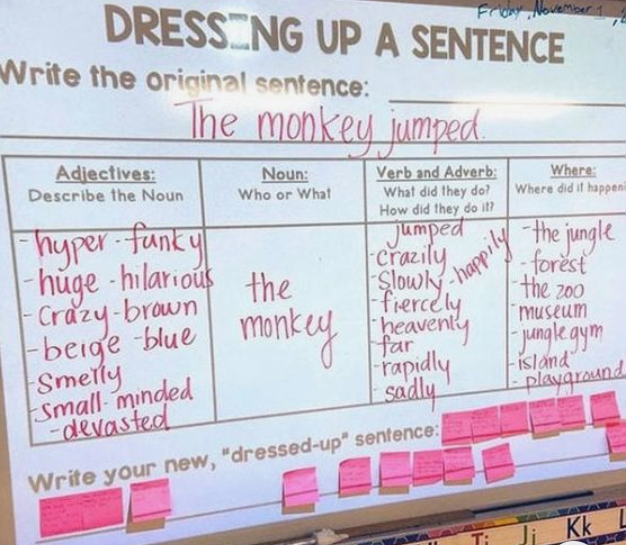 Friday, November 1,
DRESSING UP A SENTENCE
Write the original sentence:
The monkey jumped.
Adjectives:
Describe the Noun
-hyper -funky
-huge -hilarious
-crazy -brown
-beige -blue
-smelly
-small-minded
-devasted
Noun:
Who or What
the
monkey
Verb and Adverb:
What did they do?
How did they do it?
jumped
-crazily
-slowly -happily
-fiercely
-heavenly
-far
-rapidly
-sadly
Where:
Where did it happen
-the jungle
-forest
-the zoo
-museum
-jungle gym
-island
-playground
Write your new, "dressed-up" sentence:
Jj Kk